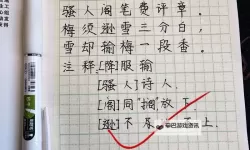 骚人阁笔费评章。
梅须逊雪三分白,
雪却输梅一段香。
注释:[降]服输
[骚人]诗人
[阁]同"搁"放下
[逊]不
上
辛巴游戏资讯